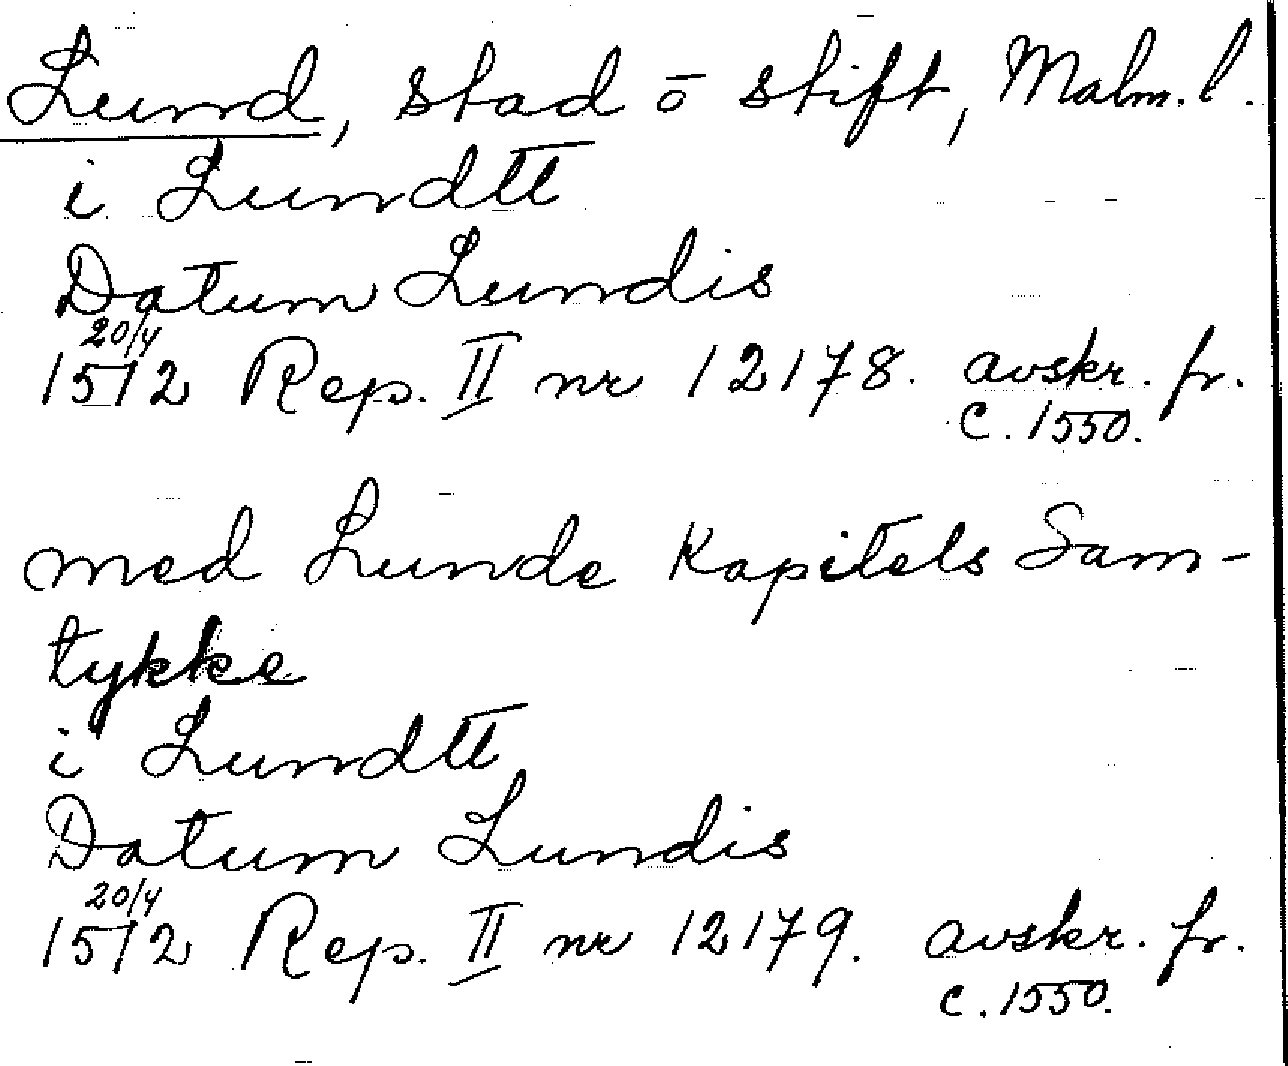 Lund, stad ō stift, Malm. l.
i Lundtt
Datum Lundis
20/4
1512 Rep. II nr 12178. avskr. fr.
c. 1550.
med Lunde Kapitels Sam-
tykke
i Lundtt
Datum Lundis
20/4
1512 Rep. II nr 12179. avskr. fr.
c. 1550.